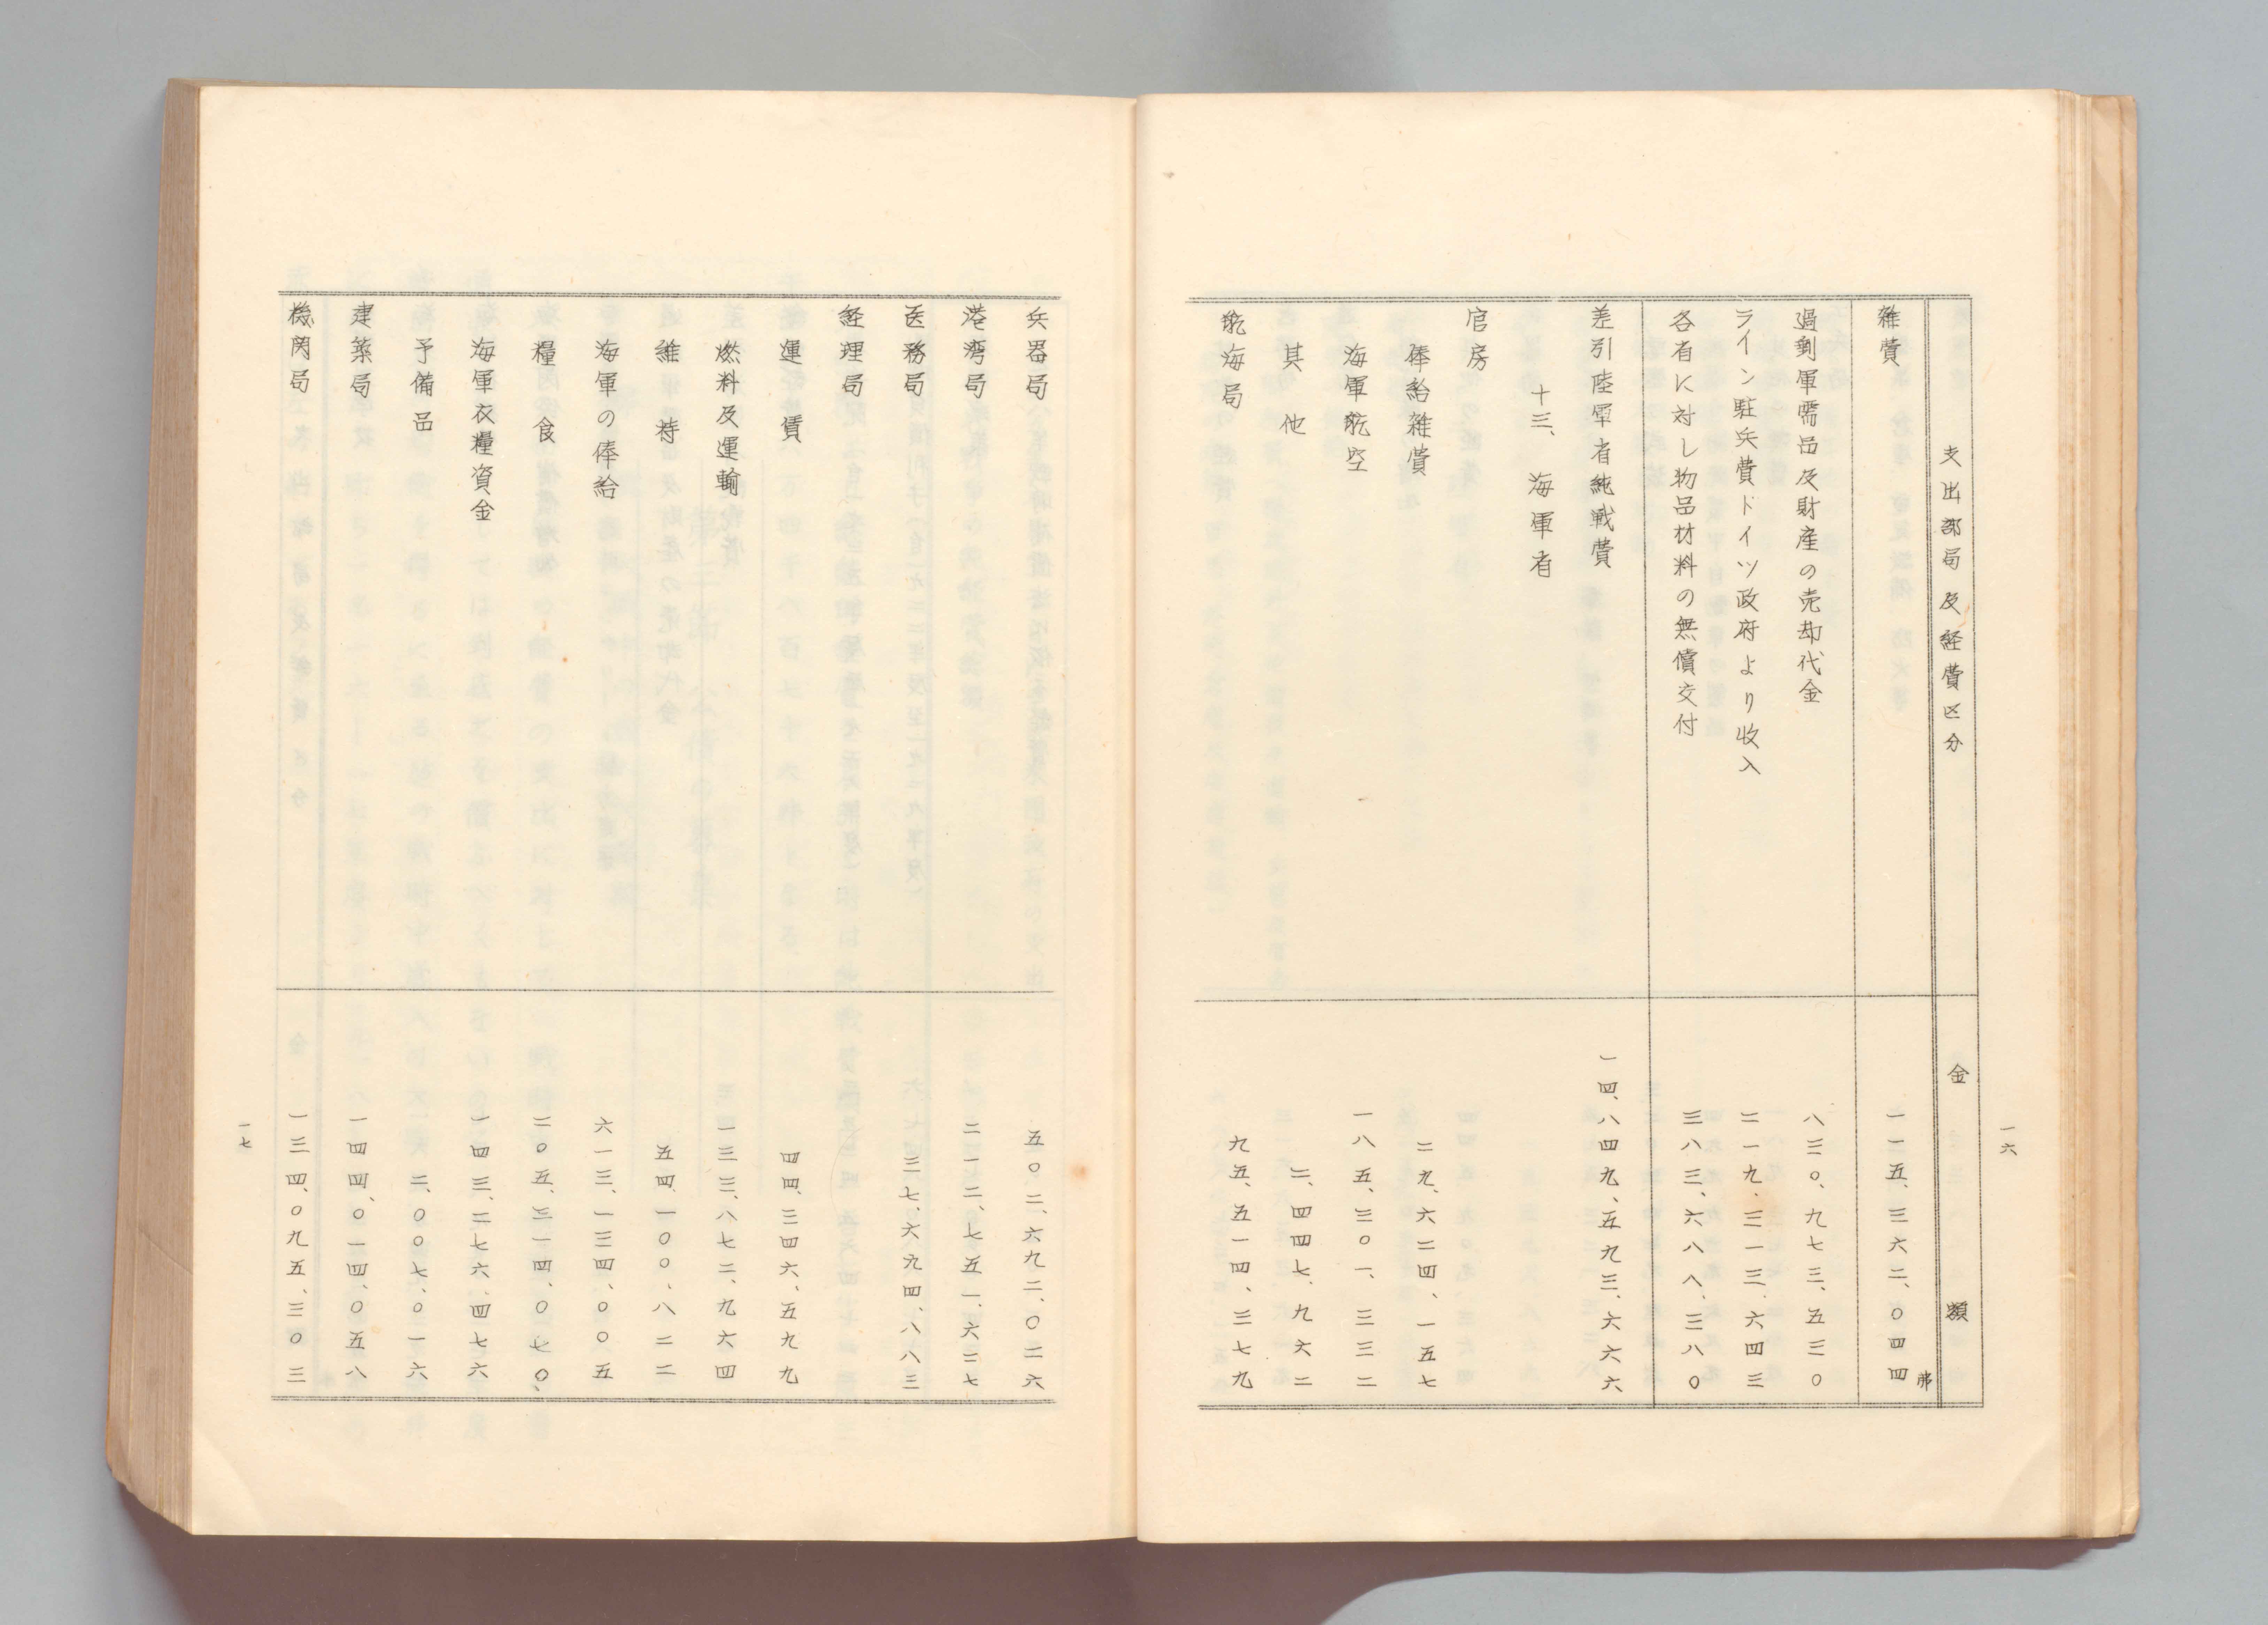 一六
支出部局及経費区分 金額
雑費 一二五、三六二、〇四四弗
過剰軍需品及財産の売却代金 八三〇、九七三、五三〇
ライン駐兵費ドイツ政府より収入 二一九、三一三、六四三
各省に対し物品材料の無償交付 三八三、六八八、三八〇
差引陸軍省純戦費 一四、八四九、五九三、六六六
十三、海軍省
官房
俸給雑費 二九、六二四、一五七
海軍航空 一八五、三〇一、三三二
其他 三、四四七、九六二
航海局 九五、五一四、三七九
兵器局 五〇二、六九二、〇二六
港湾局 二一二、七五一、六二七
医務局 三七、六九四、八八三
経理局
運賃 四四、三四六、五九九
燃料及運輸 一三三、八七二、九六四
維持 五四、一〇〇、八二二
海軍の俸給 六一三、一三四、〇〇五
糧食 二〇五、三一四、〇七〇、
海軍衣糧資金 一四三、二七六、四七六
予備品 二、〇〇七、〇一六
建築局 一四四、〇一四、〇五八
機関局 一三四、〇九五、三〇三
一七